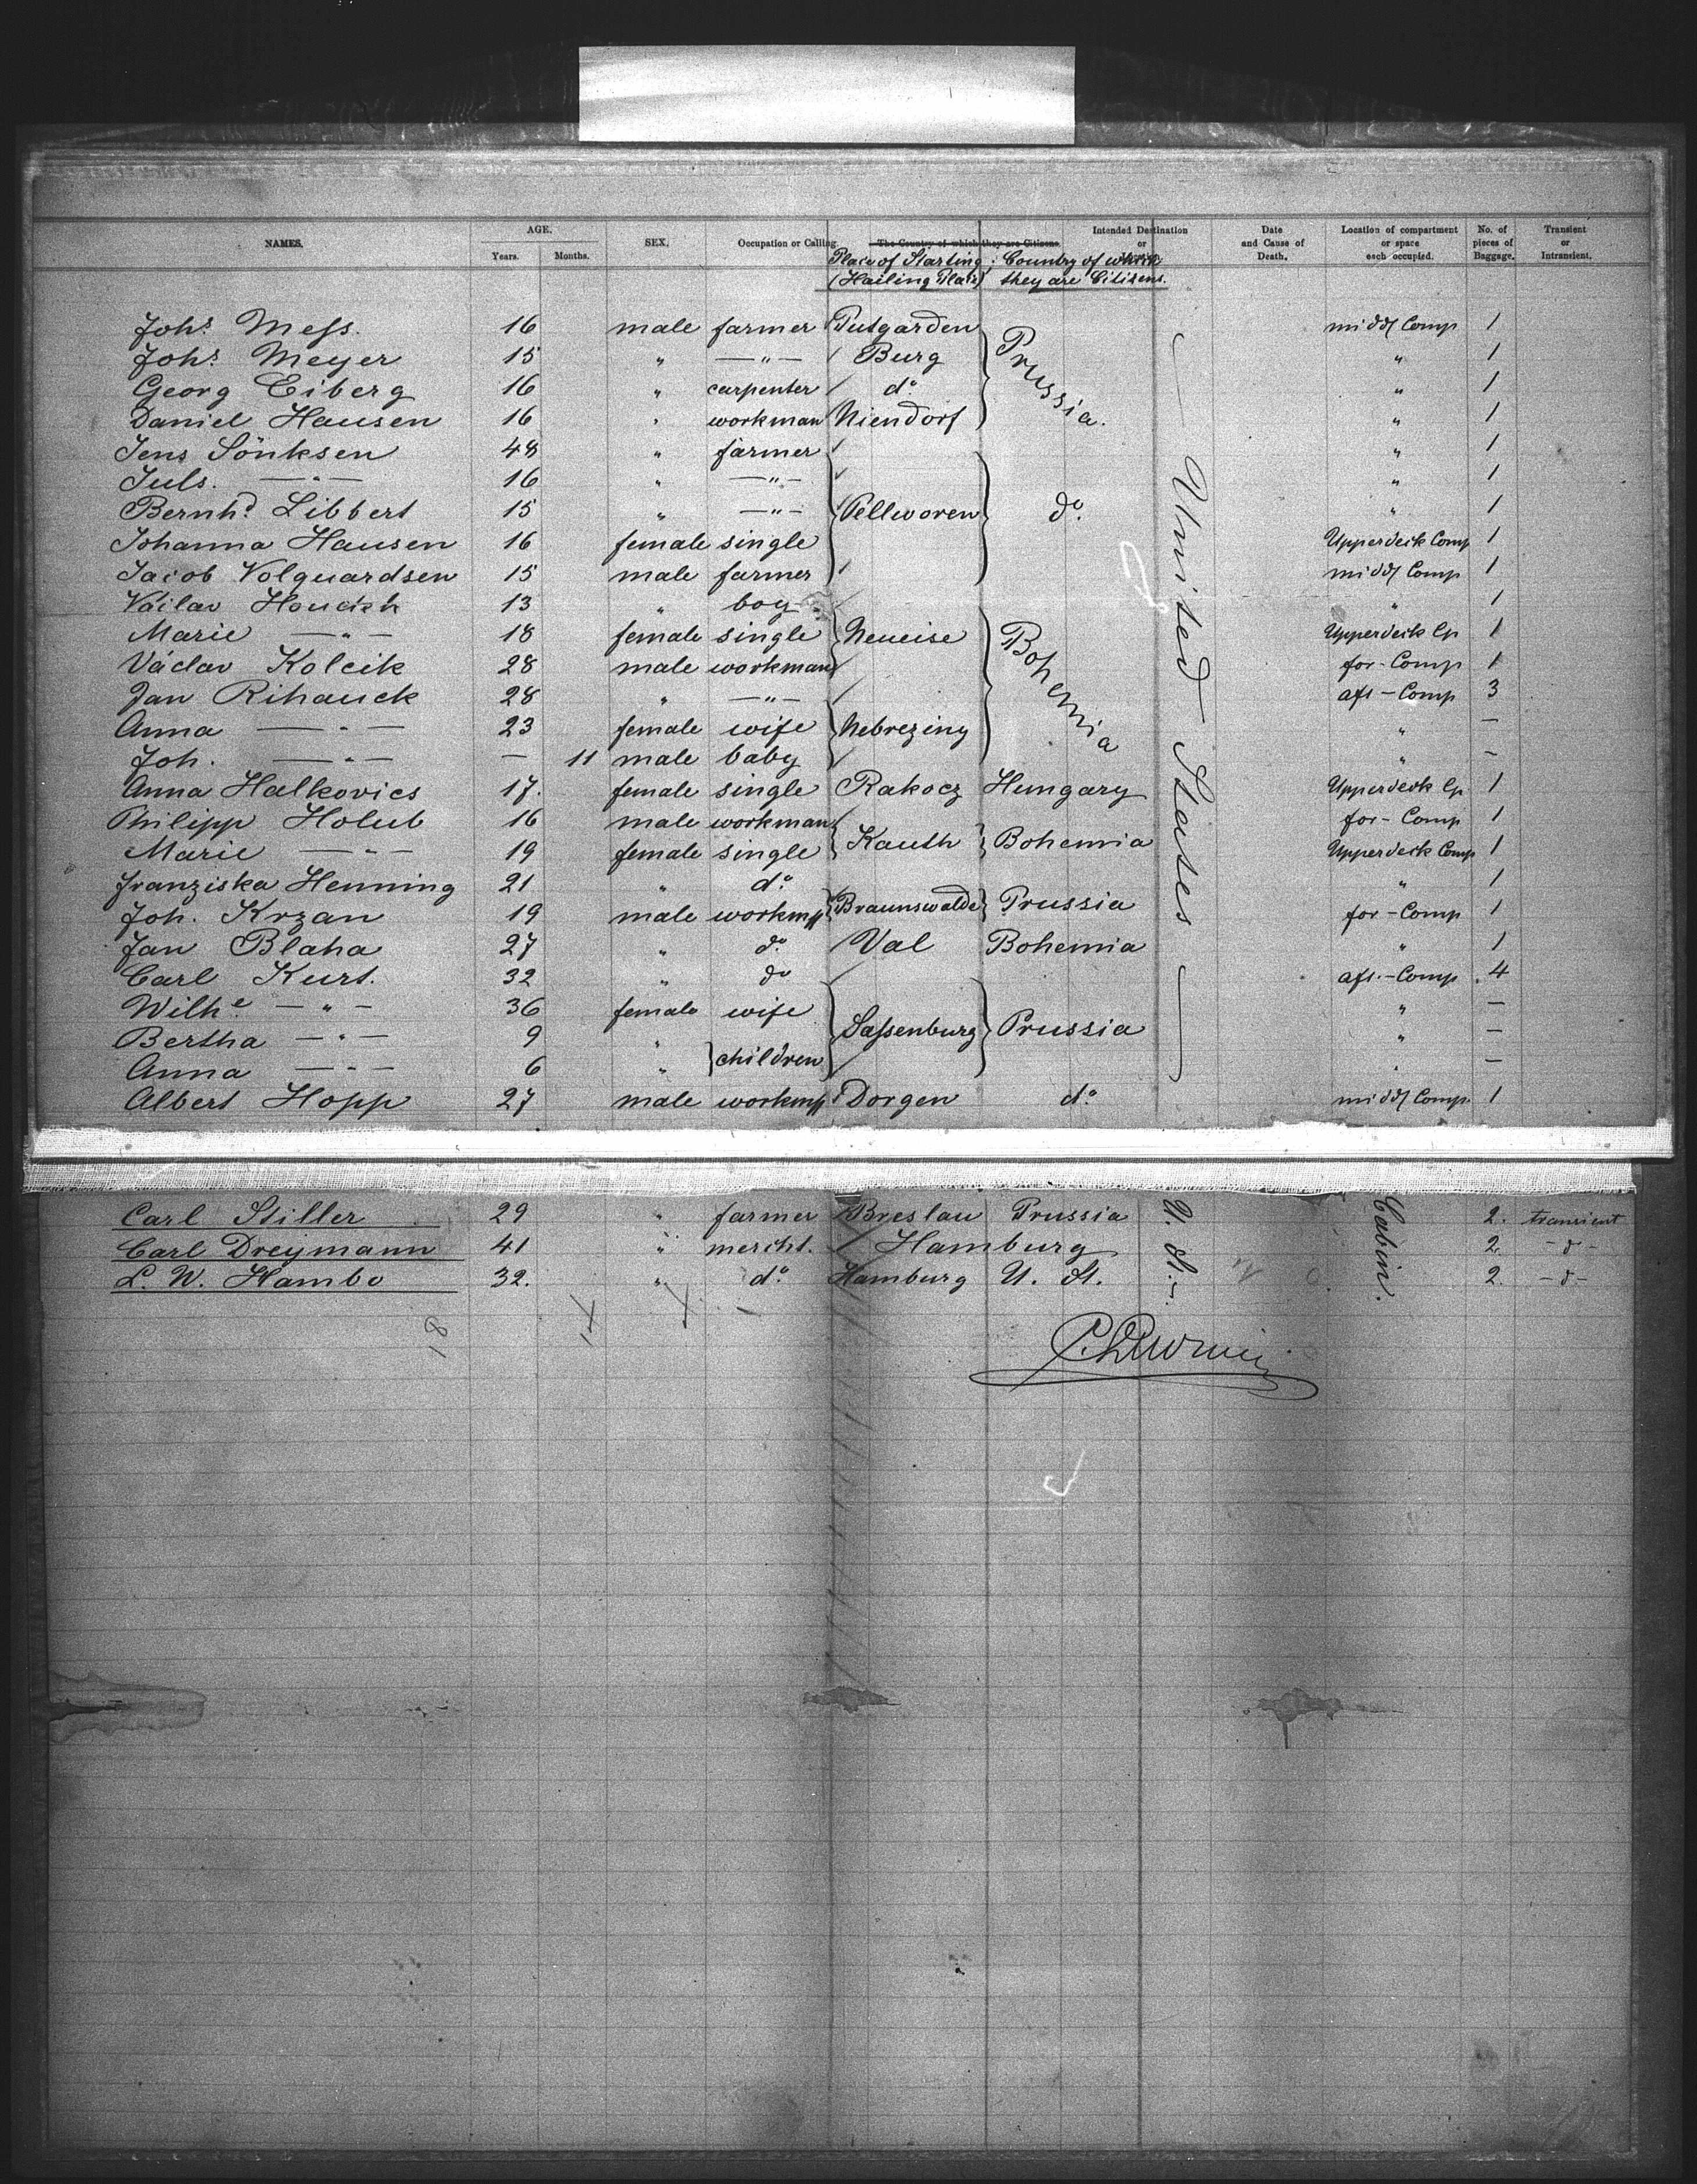 NAMES. AGE. Years. Months. SEX. Occupation or Calling. The Country of which they are Citizens. Intended Destination or Date and Cause of Death. Location of compartment or space each occupied. No. of pieces of Baggage. Transient or Intransient.
Place of Starting; Country of which
(Hailing Place) they are Citizens.
Johs Mess. 16 male farmer Putgarden Prussia. United States midd/ Comp 1
Johs Meyer 15 " —"— Burg " 1
Georg Eiberg 16 " carpenter do " 1
Daniel Hansen 16 " workman Niendorf " 1
Jens Sönksen 48 " farmer " 1
Juls. —"— 16 " —"— " 1
Bernhd Libbert 15 " —"— Pellworen do " 1
Johanna Hansen 16 female single Upperdeck Comp 1
Jacob Volquardsen 15 male farmer midd/ Comp 1
Václav 13 " boy " 1
Marie —"— 18 female single Neueise Bohemia Upperdeck Cp 1
Václav Kolcik 28 male workman for-Comp 1
Jan Rihauck 28 " —"— aft-Comp 3
Anna —"— 23 female wife Nebreziny " —
Joh. —"— — 11 male baby " —
Anna Halkovics 17. female single Rakocz Hungary Upperdeck Cp 1
Philipp Holub 16 male workman for-Comp 1
Marie —"— 19 female single Kauth Bohemia Upperdeck Comp 1
Franziska Henning 21 " do " 1
Joh. Krzan 19 male workm Braunswalde Prussia for-Comp 1
Jan Blaha 27 " do Val Bohemia " 1
Carl Kurt. 32 " do aft.-Comp 4
Wilhe —"— 36 female wife " —
Bertha —"— 9 " children Sassenburg Prussia " —
Anna —"— 6 " " —
Albert Hopp 27 male workm Dorgen do midd/ Comp. 1
Carl Stiller 29 " farmer Breslau Prussia U. St. Cabin. 2. transient
Carl Dreymann 41 " mercht. Hamburg 2. -d-
L. W. Hambo 32. " do Hamburg U. St. 2. -d-
18